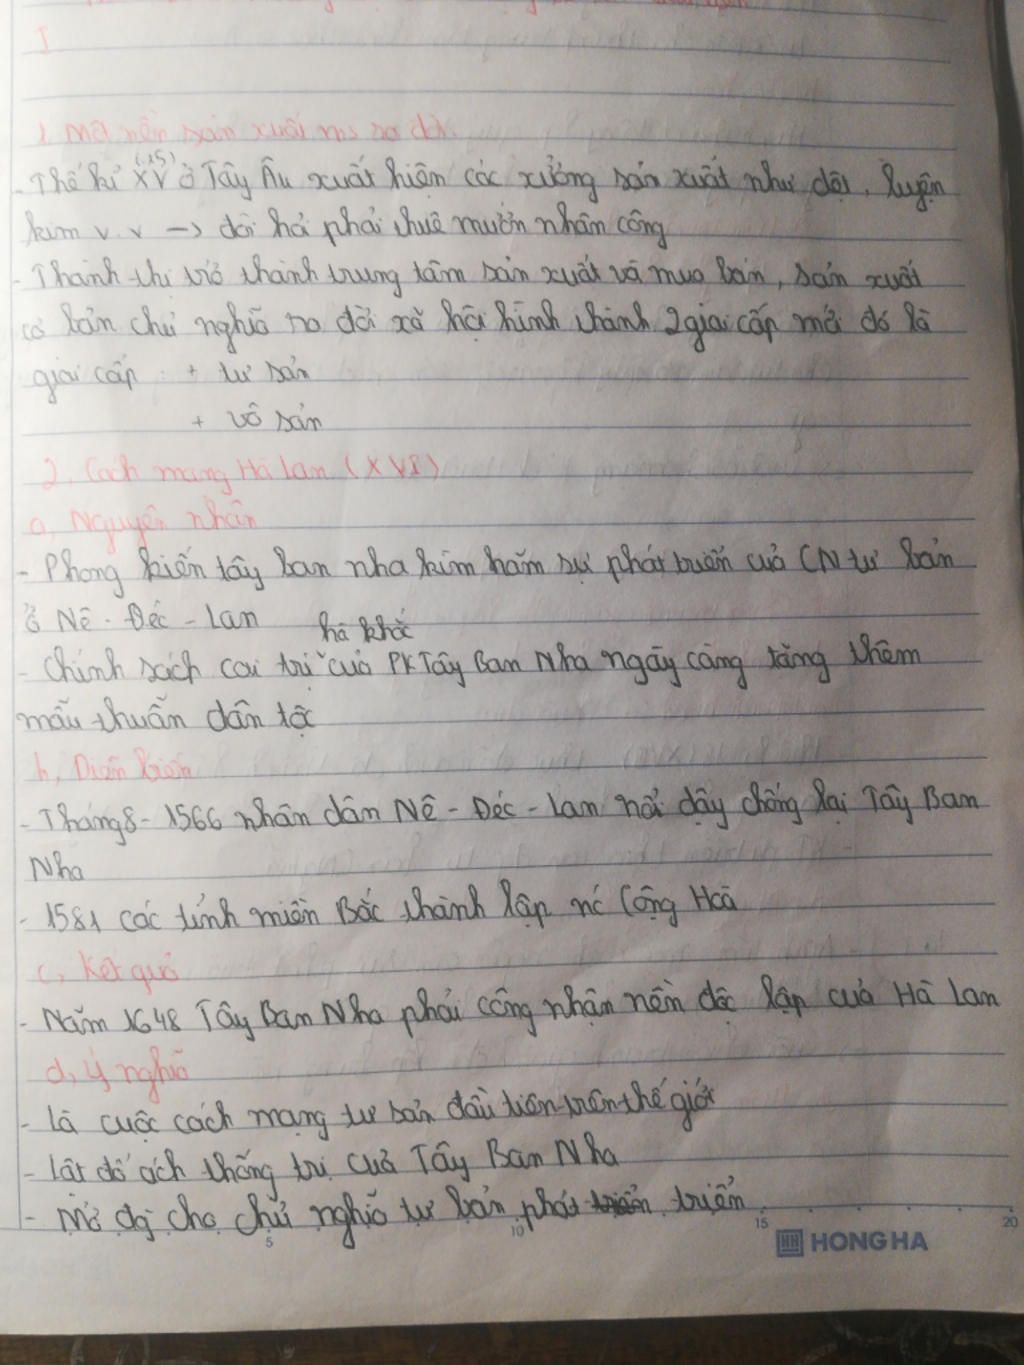 I
1. Một nền sản xuất ms ra đời.
(15)
- Thế kỉ XV ở Tây Âu xuất hiện các xưởng sản xuất như dệt, luyện
kim v.v -> đòi hỏi phải thuê mướn nhân công
- Thành thị trở thành trung tâm sản xuất và mua bán, sản xuất
tư bản chủ nghĩa ra đời xã hội hình thành 2 giai cấp mới đó là
giai cấp : + tư sản
+ vô sản
2, Cách mạng Hà Lan (XVI)
a, Nguyên nhân
- Phong kiến tây ban nha kìm hãm sự phát triển của CN tư bản
ở Nê - Đéc - lan
hà khắc
- Chính sách cai trị ˇ của PK Tây Ban Nha ngày càng tăng thêm
mâu thuẫn dân tộc
b, Diễn biến
- Tháng 8 - 1566 nhân dân Nê - Đéc - lan nổi dậy chống lại Tây Ban
Nha
- 1581 các tỉnh miền Bắc thành lập nc Cộng Hoà
c, Kết quả
- Năm 1648 Tây Ban Nha phải công nhận nền độc lập của Hà Lan
d, Ý nghĩa
- Là cuộc cách mạng tư sản đầu tiên trên thế giới
- Lật đổ ách thống trị của Tây Ban Nha
- Mở đg cho chủ nghĩa tư bản phát triển
5 10 15 20
HH HONG HA